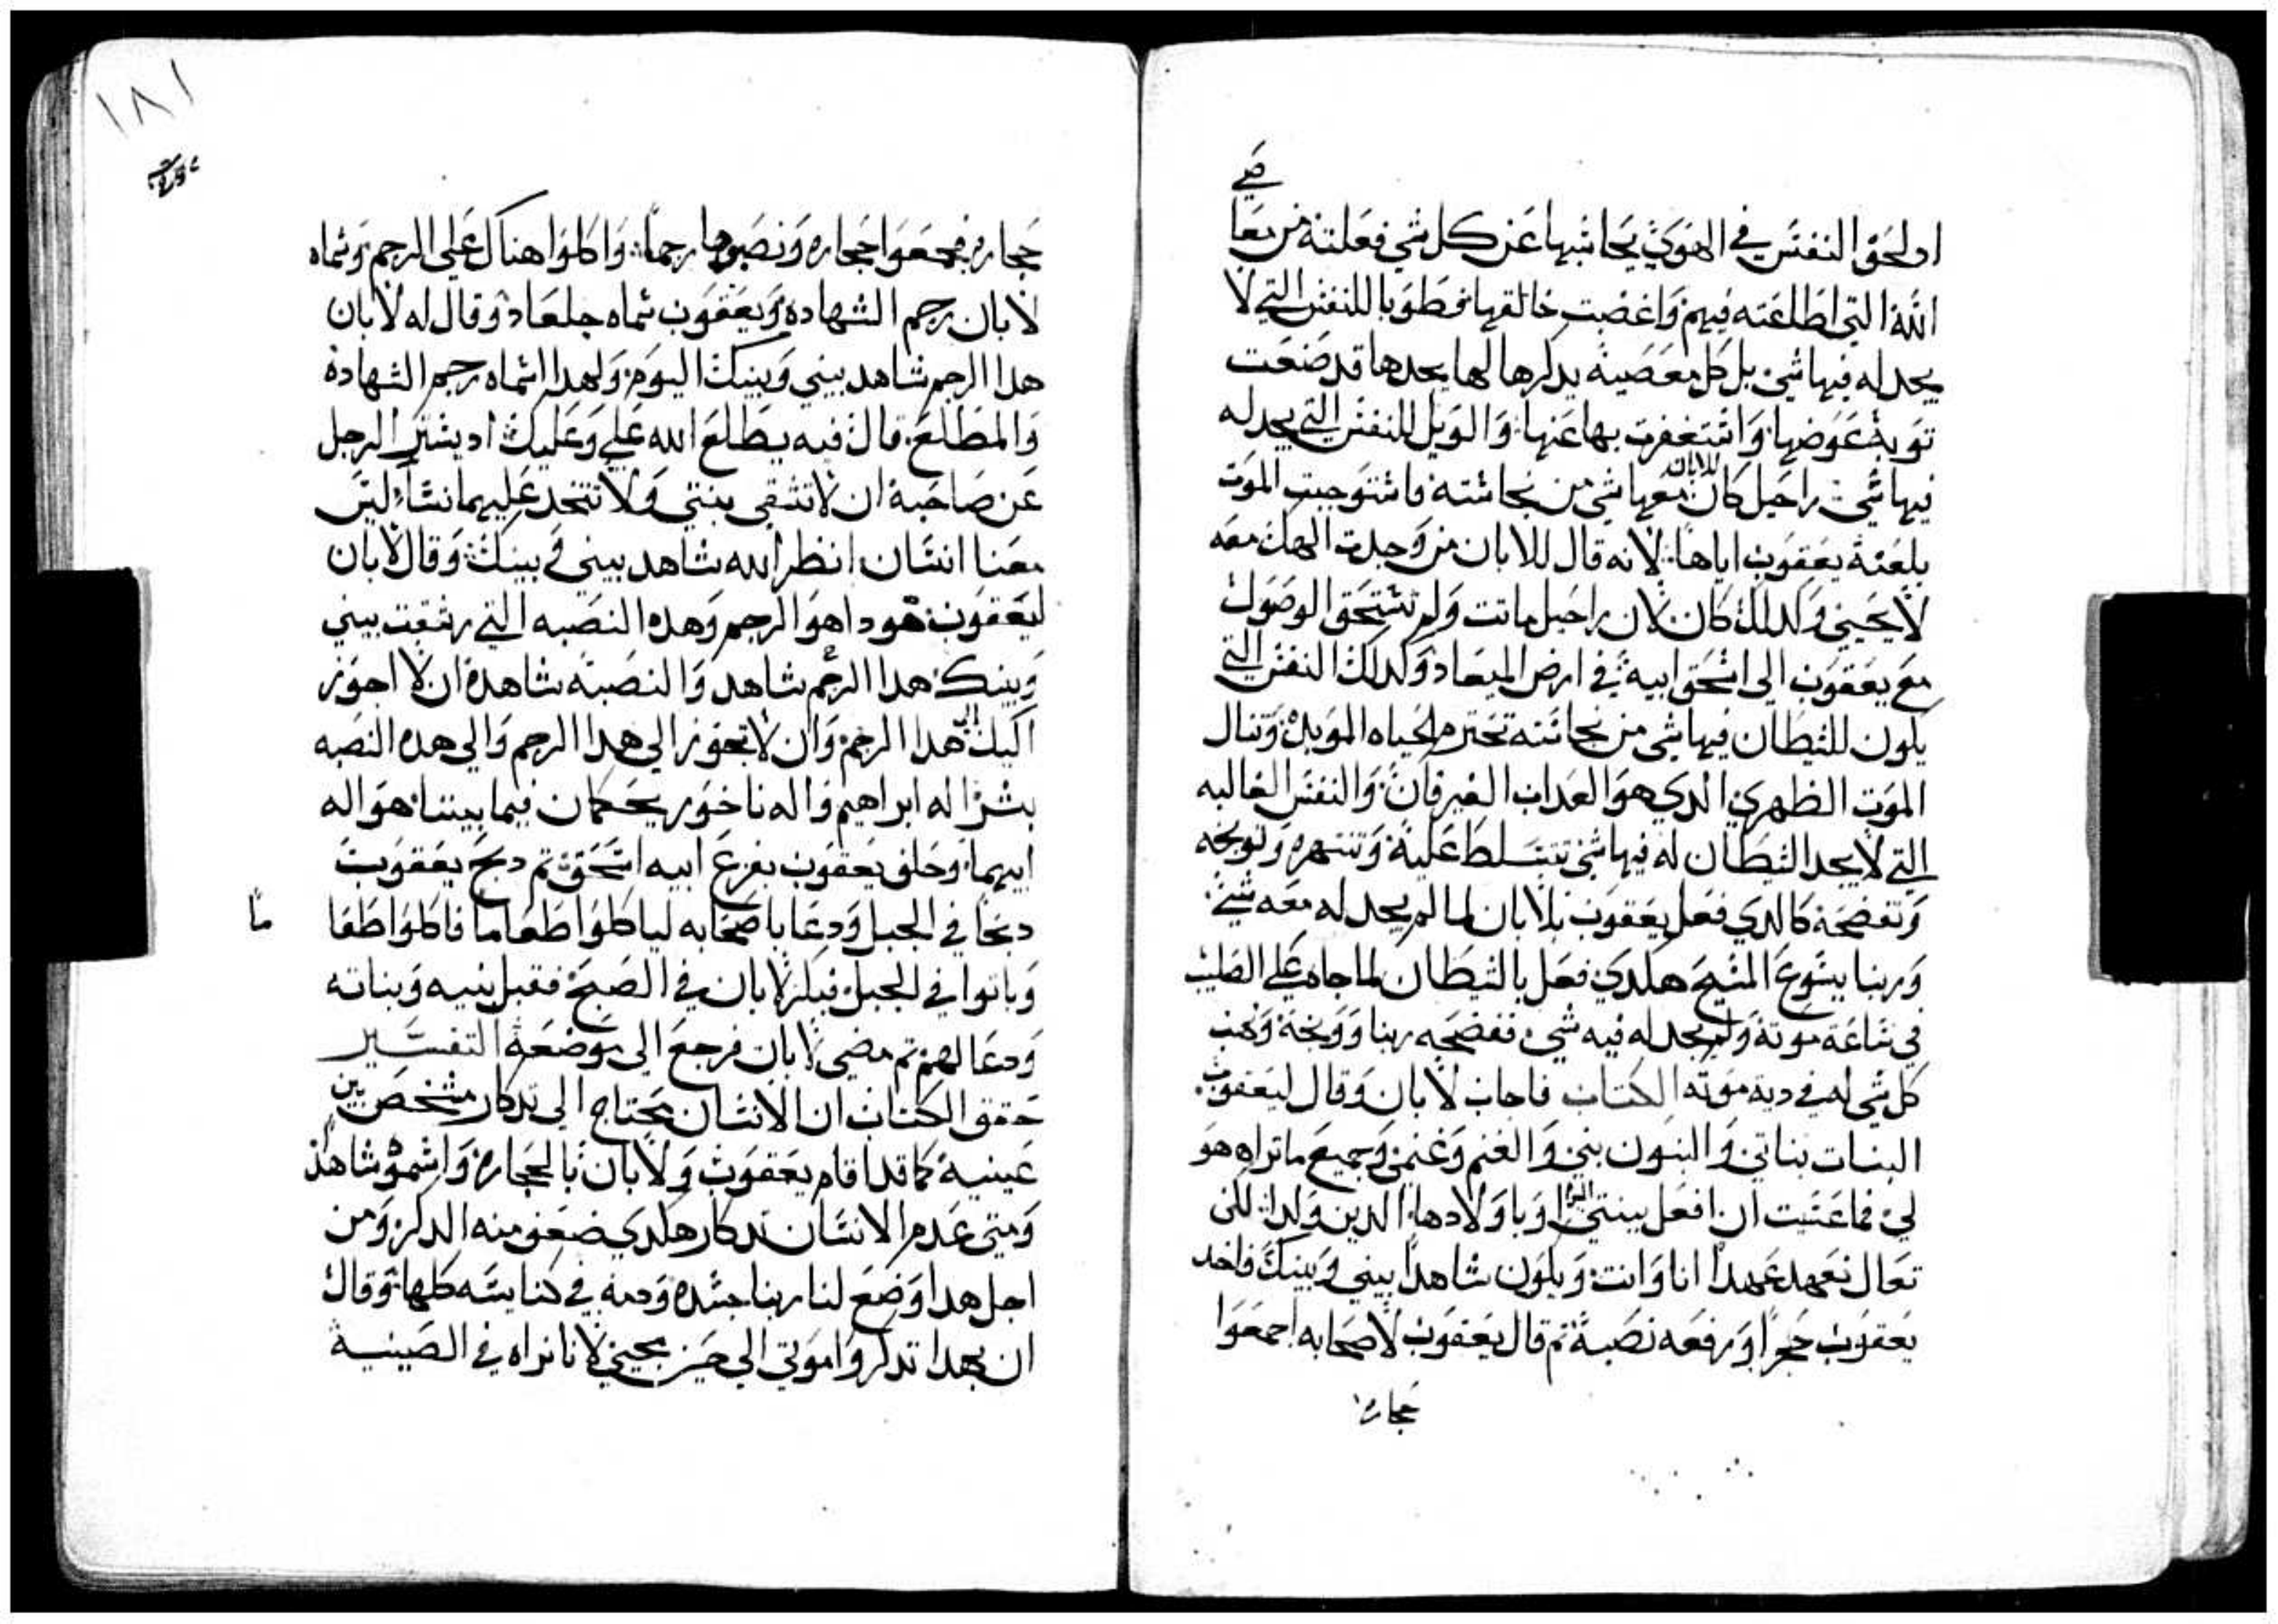 صي
او لحق النفس في الهوي يحاسبها عن كل شي فعلته من معا
الله التي اطلعته فيهم واغضبت خالقها فطوبا للنفس التي لا
يجد له فيها شي بل كل معصية يدكرها لها يجدها قد صنعت
توبة عوضها واستغفرت بها عنها والويل للنفس التي يجد له
فيها شي راحيل كان للابان معها شي من نجاسته فاستوجبت الموت
بلعنة يعقوب اياها لانه قال للابان من وجدت الهك معه
لا يحيي وكدلك كان لان راحيل ماتت ولم تستحق الوصول
مع يعقوب الي اسحق ابيه في ارض الميعاد وكدلك النفس التي
يكون للشيطان فيها شي من نجاسته تخترم الحياه الموبدة وتنال
الموت الظهري الدي هو العداب الغير فان والنفس الغالبه
التي لا يجد الشيطان له فيها شي تتسلط عليه وتنتهره وتوبخه
وتفضحه كالدي فعل يعقوب بلابان لما لم يجد له معه شي
وربنا يسوع المسيح هكدي فعل بالشيطان لما جاه علي الصليب
في ساعة موته ولم يجد له فيه شي ففضحه ربنا ووبخه ونهب
كل شي له في دية موته الكتاب فاجاب لابان وقال ليعقوب
البنات بناتي والبنون بني والغنم وغنمي وجميع ما تراه هو
لي فما عسيت ان افعل ببنتي اليوم او باولادها الدين ولدا للن
تعال نعهد عهدا انا وانت ويكون شاهدا بيني وبينك فاخد
يعقوب حجرا ورفعه نصبة تم قال يعقوب لاصحابه اجمعوا
حجاره
١٨١
حجاره فجمعوا حجاره ونصبوها رجما واكلوا هناك علي الرجم وسماه
لابان رجم الشهاده ويعقوب سماه جلعاد وقال له لابان
هدا الرجم شاهد بيني وبينك اليوم ولهدا اسماه رجم الشهادة
والمطلع قال فيه يطلع الله علي وعليك اد يستتر الرجل
عن صاحبه ان لا تشقي بنتي ولا تتخد عليهما نساء ليس
معنا انسان انظر الله شاهد بيني وبينك وقال لابان
ليعقوب هودا هو الرجم وهده النصبه التي رشقت بيني
وبينك هدا الرجم شاهد والنصبة شاهدة ان لا اجوز
اليك الي هدا الرجم وان لا تجوز الي هدا الرجم والي هده النصبه
بشر اله ابراهيم واله ناحور يحكمان فيما بيننا هو اله
ابيهما وحلف يعقوب بفزع ابيه اسحق تم دبح يعقوب
دبحا في الجبل ودعا باصحابه لياكلوا طعاما فاكلوا طعا
ما
وباتوا في الجبل فبكر لابان في الصبح فقبل بنيه وبناته
ودعا لهم تم مضي لابان فرجع الي موضعه التفسير
حقق الكتاب ان الانسان يحتاج الي تدكار مشخص بين
عينيه كما قد اقام يعقوب ولابان بالحجارة واسموه شاهد
ومتي عدم الانسان تدكار هكدي ضعف منه الدكر ومن
اجل هدا وضع لنا ربنا جسده ودمه في كنايسه كلها وقال
ان بهدا تدكروا موتي الي حين مجيي لاننا نراه في الصينية